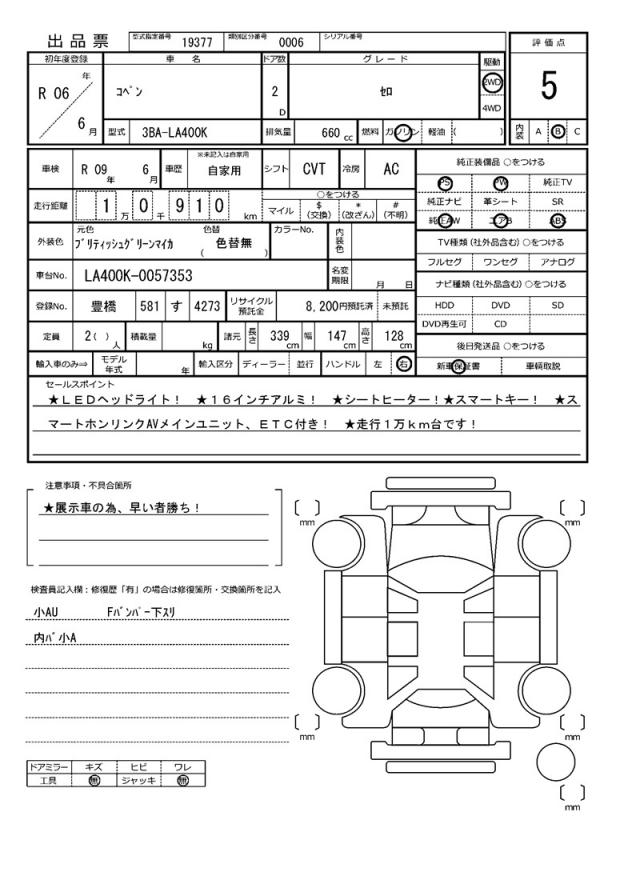 出品票 型式指定番号 19377 類別区分番号 0006 シリアル番号
初年度登録 車名 ドア数 グレード 駆動 評価点
R 06 年 6 月 コペン 2 D セロ 2WD 4WD 5
型式 3BA-LA400K 排気量 660 cc 燃料 ガソリン 軽油 ( ) 内装 A B C
車検 R 09 年 6 月 車歴 ※未記入は自家用 自家用 シフト CVT 冷房 AC
純正装備品 ○をつける
PS PW 純正TV
走行距離 1 万 0 千 9 1 0 km ○をつける
マイル $ (交換) * (改ざん) # (不明)
純正ナビ 革シート SR
純正AW エアB ABS
外装色 元色 ブリティッシュグリーンマイカ 色替 ( 色替無 ) カラーNo. 内装色
TV種類 (社外品含む) ○をつける
フルセグ ワンセグ アナログ
車台No. LA400K-0057353 名変期限 月 日
ナビ種類 (社外品含む) ○をつける
登録No. 豊橋 581 す 4273 リサイクル預託金 8,200円預託済 未預託
HDD DVD SD
DVD再生可 CD
定員 2( ) 人 積載量 kg 諸元 長さ 339 cm 幅 147 cm 高さ 128 cm
後日発送品 ○をつける
輸入車のみ⇒ モデル年式 年 輸入区分 ディーラー 並行 ハンドル 左 右
新車保証書 車輌取説
セールスポイント
★LEDヘッドライト! ★16インチアルミ! ★シートヒーター!★スマートキー! ★ス
マートホンリンクAVメインユニット、ETC付き! ★走行1万km台です!
注意事項・不具合箇所
★展示車の為、早い者勝ち!
検査員記入欄:修復歴「有」の場合は修復箇所・交換箇所を記入
小AU Fバンパー下スリ
内パ小A
ドアミラー キズ ヒビ ワレ
工具 無 ジャッキ 無
mm
mm
mm
mm
mm